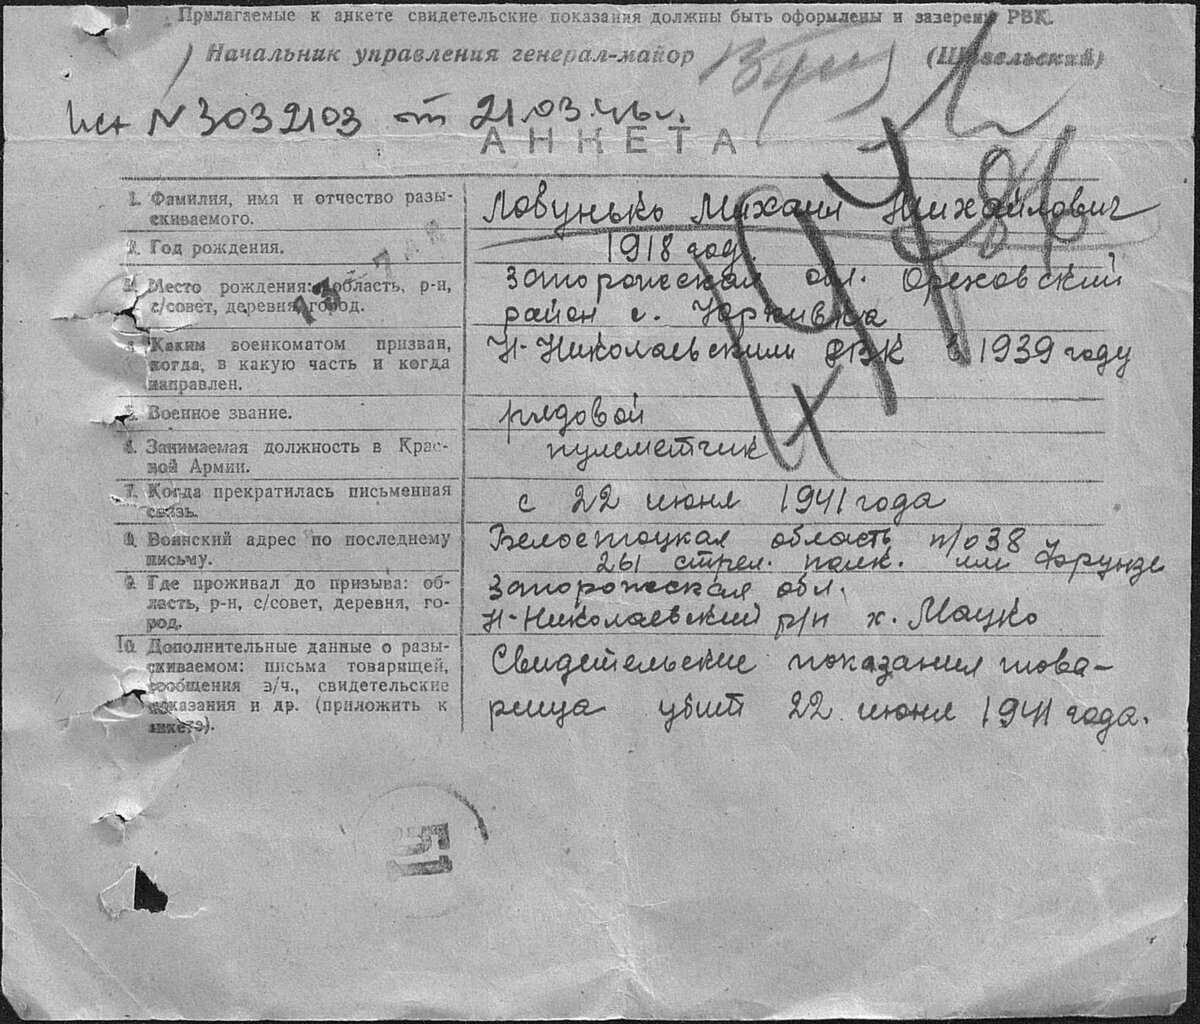 Прилагаемые к анкете свидетельские показания должны быть оформлены и заверены РВК.
Начальник управления генерал-майор (Шавельский)
Исх N 3032103 от 21.03.46г.
АНКЕТА
1. Фамилия, имя и отчество разы-
скиваемого.
Ловунько Михаил Михайлович
2. Год рождения.
1918 год.
3. Место рождения: область, р-н,
с/совет, деревня, город.
Запорожская обл. Ореховский
район с.
4. Каким военкоматом призван,
когда, в какую часть и когда
направлен.
Н-Николаевским РВК в 1939 году
5. Военное звание.
рядовой
6. Занимаемая должность в Крас-
ной Армии.
пулеметчик
7. Когда прекратилась письменная
связь.
с 22 июня 1941 года
8. Воинский адрес по последнему
письму.
Белостоцкая область п/о 38
261 стрел. полк. им Фрунзе
9. Где проживал до призыва: об-
ласть, р-н, с/совет, деревня, го-
род.
Запорожская обл.
Н-Николаевский р/н х. Мацко
10. Дополнительные данные о разы-
скиваемом: письма товарищей,
сообщения в/ч., свидетельские
показания и др. (приложить к
анкете).
Свидетельские показания това-
рища убит 22 июня 1941 года.